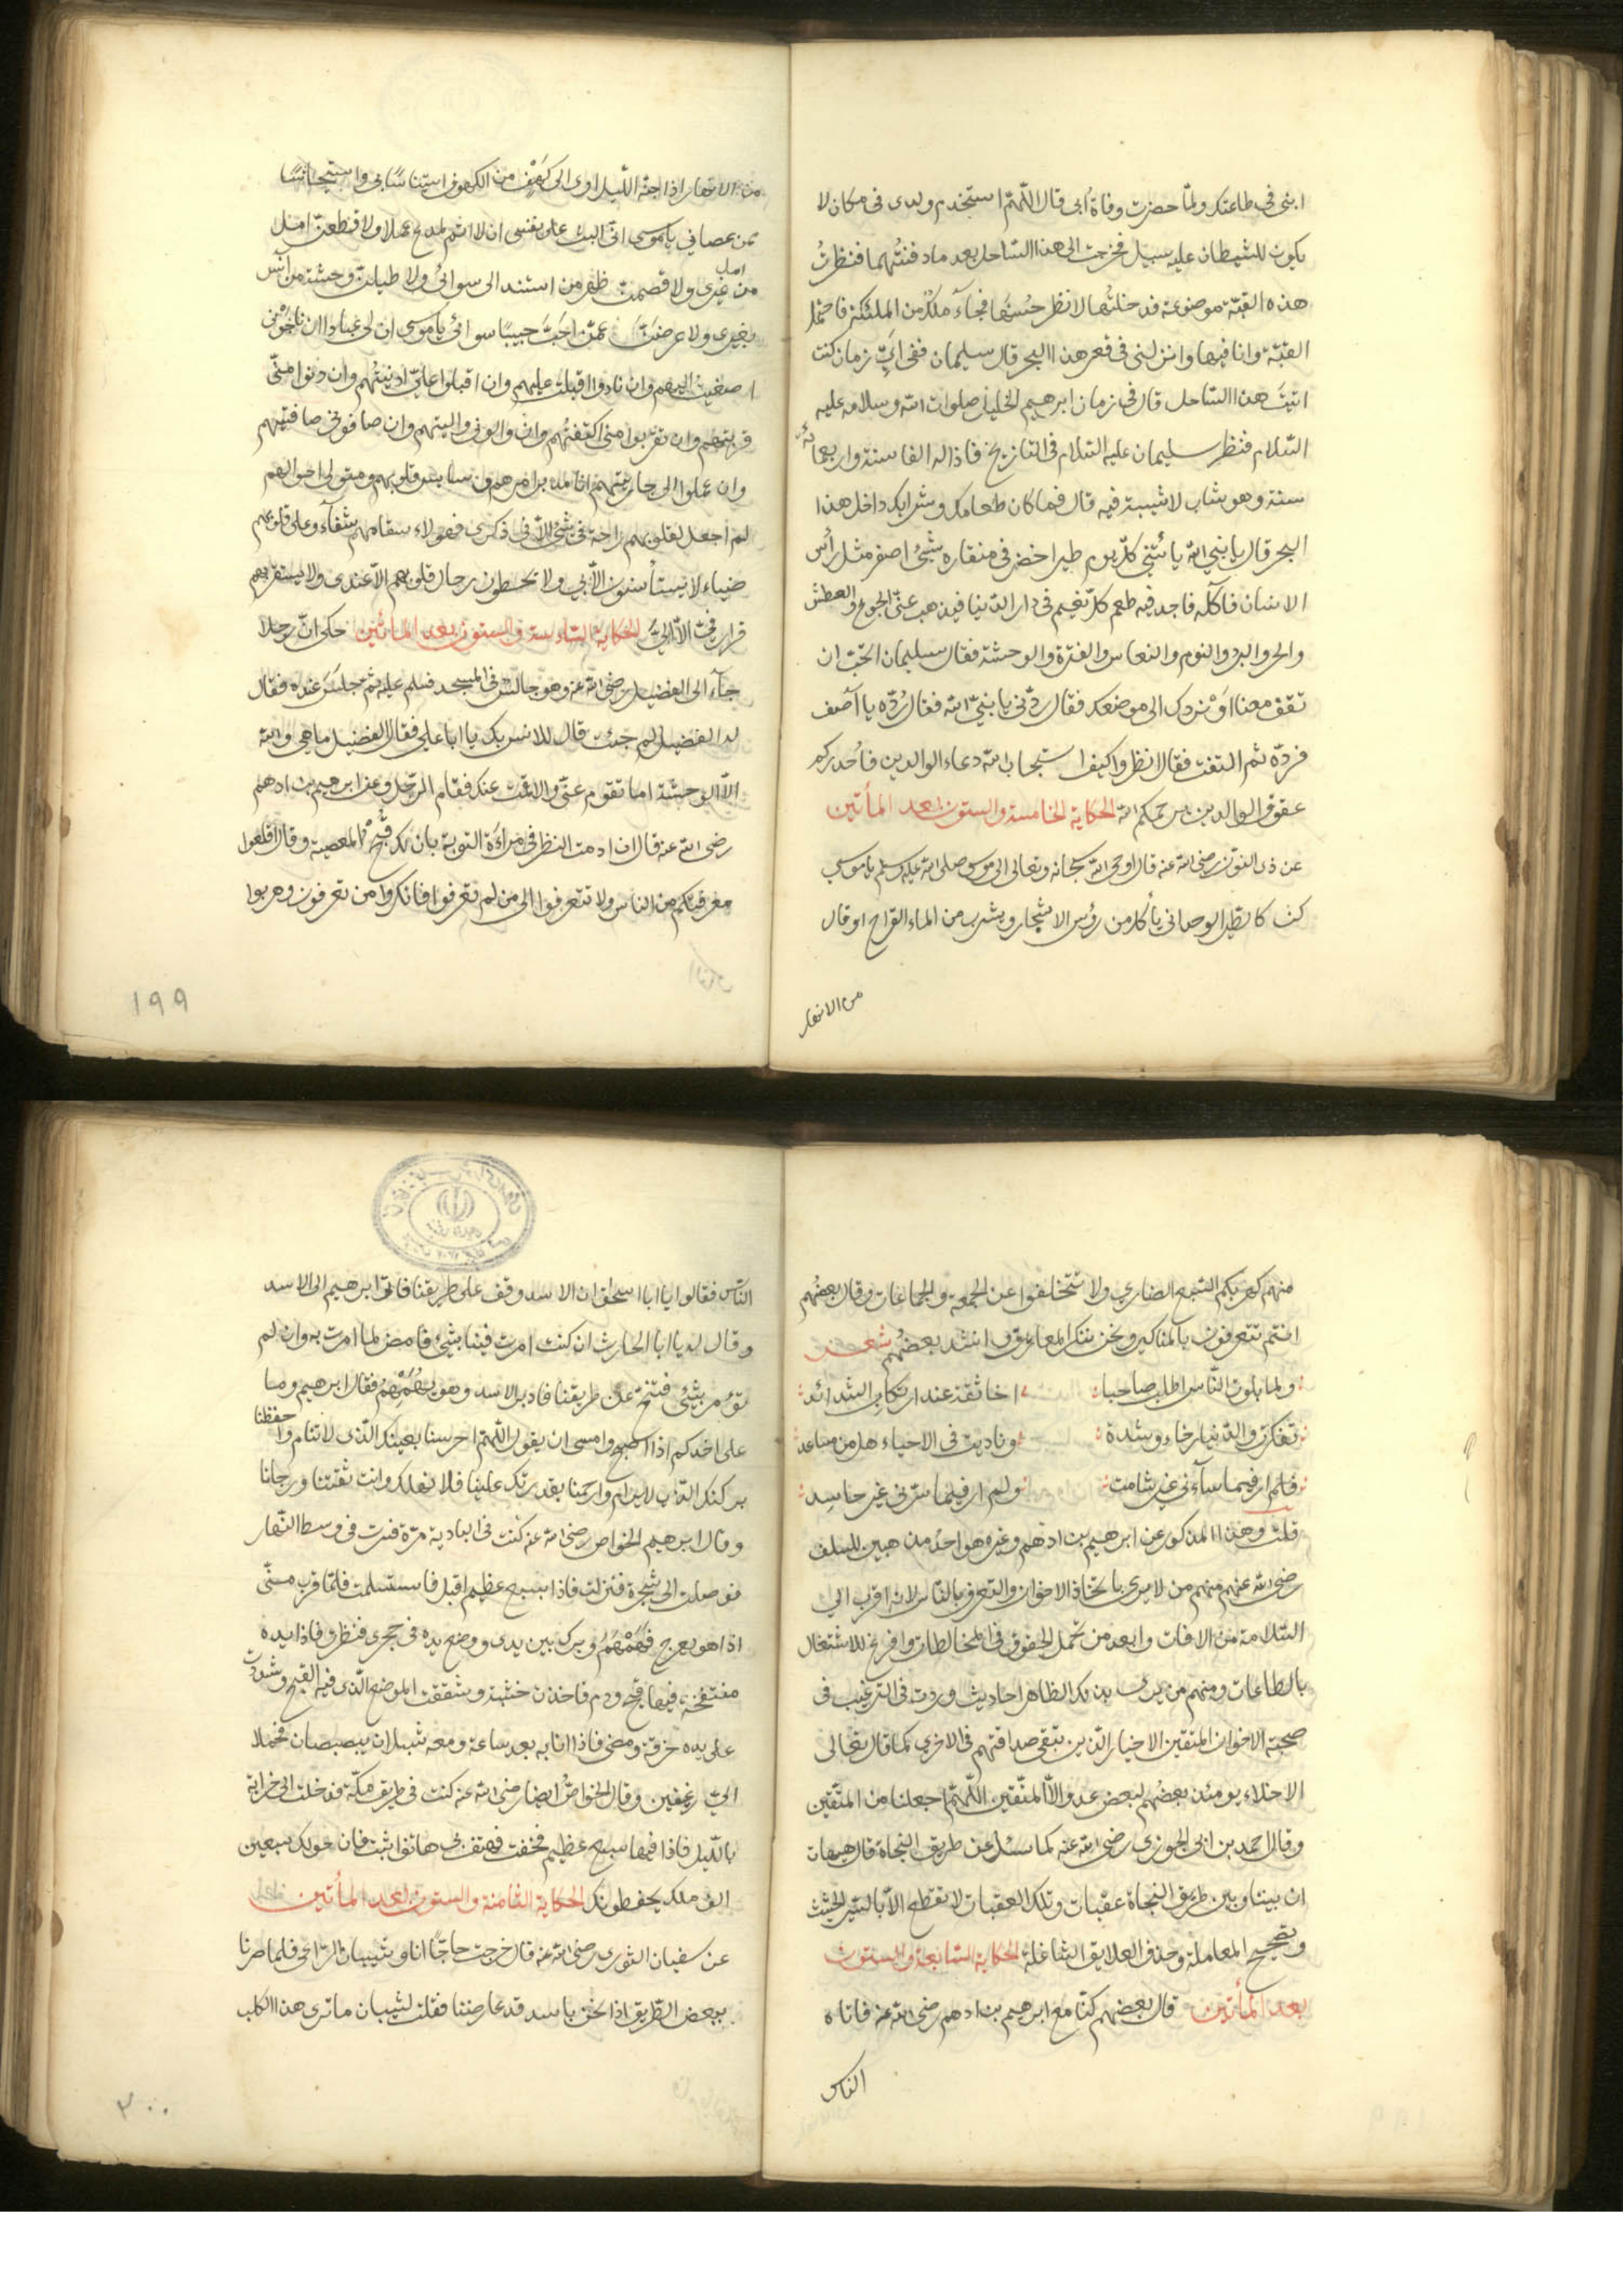 ابنى فى طاعتك ولمّا حضرت وفاة أبى قال اللّهمّ استخدم ولدى فى مكان لا
يكون للشيطان عليه سبيل فخرجت الى هذا الساحل بعد ما دفنتهما فنظرتُ
هذه القبّة موضوعة فدخلتُها لانظر حُسنَها فجآء ملكٌ من الملئكة فاحتمل
القبّة وانا فيها وانزلنى فى قعر هذا البحر قال سليمان ففى اىّ زمان كنت
اتيتَ هذا الساحل قال فى زمان ابرهيم الخليل صلوات الله وسلامه عليه
السّلام فنظر سليمان عليه السّلام فى التاريخ فاذا له الفا سنة واربعمائة
سنة وهو شاب لا شيبة فيه قال فما كان طعامك وشرابك داخل هذا
البحر قال يا بنى الله يأتينى كلّ يوم طير اخضر فى منقاره شىء اصفر مثل رأس
الانسان فآكله فاجد فيه طعم كلّ نعيم فى دار الدّنيا فيذهب عنّى الجوع والعطش
والحر والبرد والنوم والنعاس والفترة والوحشة فقال سليمان اتحبّ ان
تقف معنا اوْ نردك الى موضعك فقال ردّنى يا نبىّ الله فقال رُدّه يا آصف
فردّه ثم التفت فقال انظروا كيف استجاب الله دعاء الوالدين فأحذركم
عقوق الوالدين رحمكم الله الحكاية الخامسة والستون بعد المأتين
عن ذى النون رضى الله عنه قال اوحى الله سبحانه وتعالى الى موسى صلى الله عليه وسلم يا موسى
كن كالطير الوحدانى يأكل من رؤس الاشجار ويشرب من الماء القراح او قال
من الانهار
من الانهار اذا جنّه الليل اوى الى كهف من الكهوف استيناسًا بى واستيحاشًا
ممن عصانى يا موسى انّى آليت على نفسى ان لا اتم لمدبر عملا ولاقطعنّ امل
امل
من غيرى ولاقصمنّ ظهر من استند الى سوائى ولاطيلنّ وحشة من انس
بغيرى ولاعرضنّ عمّن احبّ حبيبًا سوائى يا موسى ان لى عبادا ان ناجونى
اصغيت اليهم وان نادوا اقبلت عليهم وان اقبلوا علىّ ادنيتُهم وان دنوا منّى
قربتهم وان تقربوا منى اكتنفتُهم وان والونى واليتهم وان صافونى صافيتهم
وان عملوا الى جازيتهم انا مدبر امرهم وسايس قلوبهم ومتولى احوالهم
لم اجعل لقلوبهم راحة فى شىء الّا فى ذكرى فهولاء سقامهم شفآء وعلى قلوبهم
ضياء لا يستأنسون الّا بى ولا يحطون رحال قلوبهم الّا عندى ولا يستقر بهم
قرار فى الّا الىّ الحكاية السادسة والستون بعد المأتين حكى انّ رجلا
جآء الى الفضيل رضى الله عنه وهو جالسٌ فى المسجد فسلم عليه ثم جلسَ عنده فقال
له الفضيل لم جئت قال للانس بك يا ابا على فقال الفضيل ما هى والله
الّا الوحشة اما تقوم عنّى والّا قمت عنك فقام الرّجل وعن ابرهيم بن ادهم
رضى الله عنه قال ان ادمت النظر فى مرآة التوبة بان لك قبح المعصية وقال اقلعوا
معرفتكم من الناس ولا تتعرفوا الى من لم تعرفوا فانكروا من تعرفون وهربوا
١٩٩
منهم كهربكم السّبع الضارى ولا تتخلفوا عن الجمعة والجماعات وقال بعضُهم
انتم تتعرفون بالمناكير ونحن ننكر المعارف وانشد بعضُهم شعر
ولما بلوت النّاس اطلب صاحبا اخا ثقة عند ارتكاب الشدائد
تفكرت والدّنيا رخاء وشدة وناديت فى الاحياء هل من مساعد
فلم ار فيما ساءنى غير شامت ولم ار فيما سرّنى غير حاسِد
قلت وهذا المذكور عن ابرهيم بن ادهم وغيره هو احدُ مذهبين للسلف
رضى الله عنهم منهم من لا يرى باتخاذ الاخوان والتعرف بالنّاس لانه اقرب الى
السّلامة من الافات وابعد من تحمل الحقوق فى المخالطات وافرغ للاشتغال
بالطاعات ومنهم من يرى بذلك الظاهر احاديث وردت فى الترغيب فى
صحبة الاخوان المتقين الاخيار الذين تبقى صداقتهم فى الاخرى كما قال تعالى
الاخلاء يومئذ بعضهم لبعض عدو الّا المتّقين اللّهمّ اجعلنا من المتّقين
وقال احمد بن ابى الجوزى رضى الله عنه لما سئل عن طريق النجاة قال هيهات
ان بيننا وبين طريق النجاة عقبات وتلك العقبات لا تقطع الّا بالسّير الحثيث
وتصحيح المعاملة وحذف العلايق الشاغلة الحكاية السّابعة والستون
بعد المأتين قال بعضهم كنّا مع ابرهيم بن ادهم رضى الله عنه فاتاه
الناس
النّاس فقالوا يا ابا اسحاق ان الاسد وقف على طريقنا فاتى ابرهيم الى الاسد
وقال له يا ابا الحارث ان كنت امرت فينا بشىء فامض لما امرت به وان لم
تؤمر بشىء فتنحّ عن طريقنا فادبر الاسد وهو يهمهم فقال ابرهيم وما
على احدكم اذا اصبح وامسى ان يقول اللّهمّ احرسنا بعينك الّتى لا تنام واحفظنا
بركنك الّذى لا يرام وارحمنا بقدرتك علينا فلا نهلك وانت ثقتنا ورجانا
وقال ابرهيم الخواص رضى الله عنه كنت فى البادية مرة فسرت فى وسط النّهار
فوصلت الى شجرة فنزلت فاذا بسبع عظيم اقبل فاستسلمت فلمّا قرب منّى
اذا هو يعرج فهمهم وبرك بين يدى ووضع يده فى حجرى فنظرت فاذا يده
منتفخة فيها قيح ودم فاخذت خشبة وشققت الموضع الّذى فيه القيح وشددت
على يده خرقة ومضى فاذا انا به بعد ساعة ومعه شبلان يبصبصان فحملا
الىّ رغيفين وقال الخواصّ ايضا رضى الله عنه كنت فى طريق مكّة فدخلت الى خرابة
بالليل فاذا فيها سبع عظيم فخفت فهتف بى هاتف اثبت فان حولك سبعين
الف ملك يحفظونك الحكاية الثامنة والستون بعد المأتين
عن سفيان الثورى رضى الله عنه قال خرجت حاجّا انا وشيبان الرّاعى فلما صرنا
ببعض الطّريق اذا نحن باسد قد عارضنا فقلت لشيبان ما ترى هذا الكلب
٢٠٠